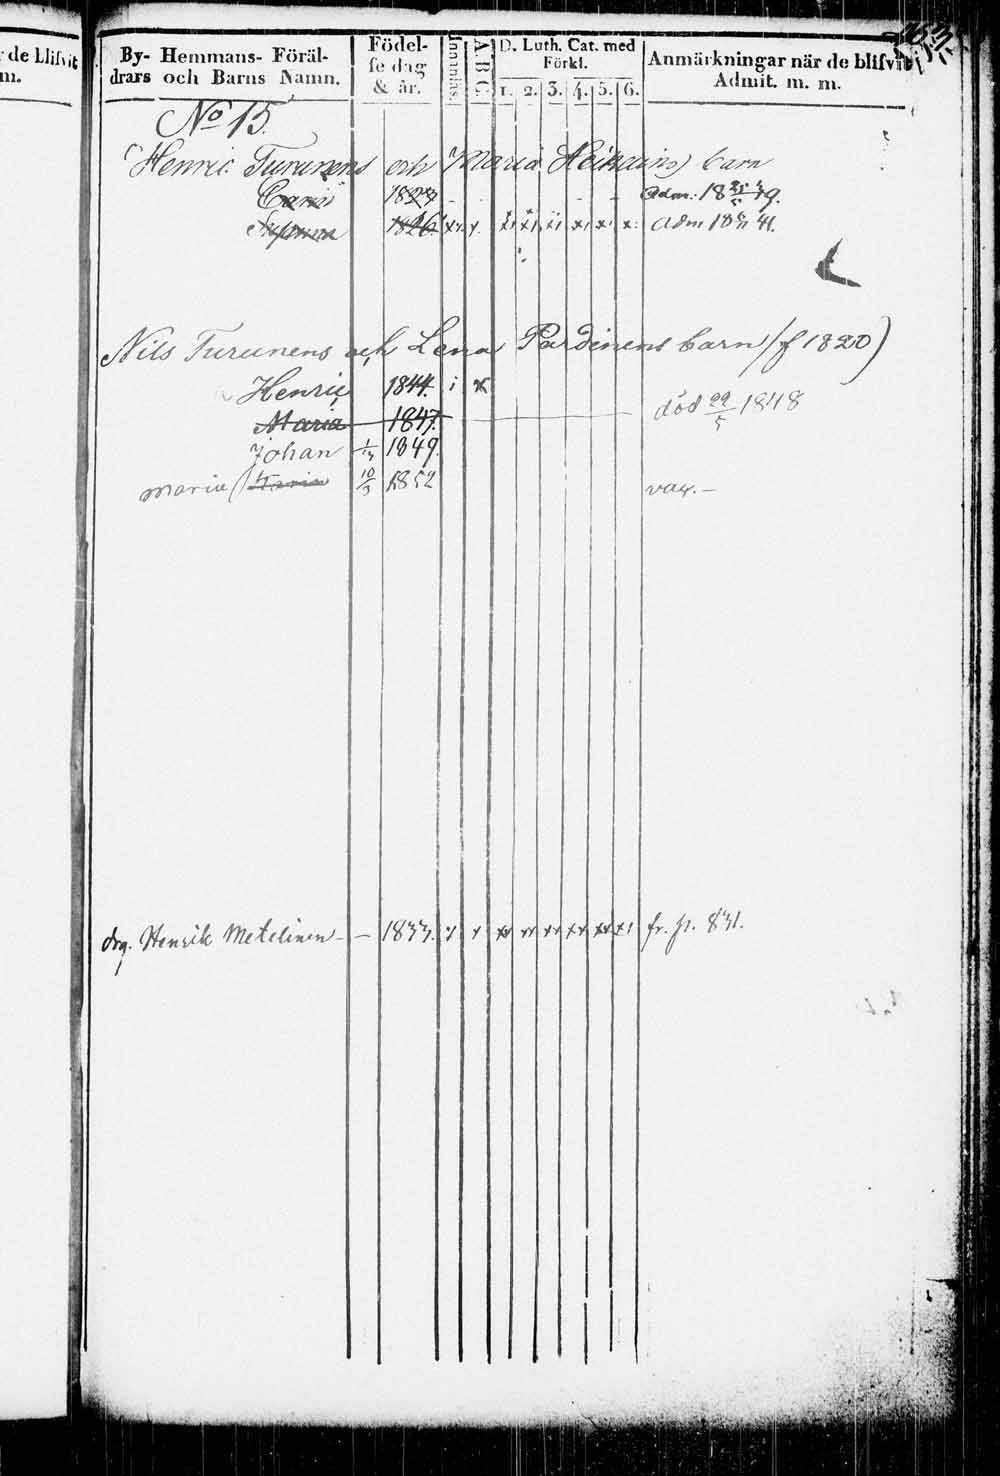 de blifvit
m.
By- Hemmans- Föräl-
drars och Barns Namn.
Födel-
se dag
& år.
Innanläs.
A.B.C.
D. Luth. Cat. med
Förkl.
1. 2. 3. 4. 5. 6.
Anmärkningar när de blifvit
Admit. m. m.
No 15.
Henric Turunens och Maria Heikkins barn
Adm. 18
1826. Adm 18 41.
Nils Turunens och Lena Pardinens barn (f 1820)
Henric 1844.
Maria 1847. död 29/5 1848
Johan 1849.
Maria 10/3 1852 vax. —
drg. Henrik Metelinen — — 1833. fr. p. 831.